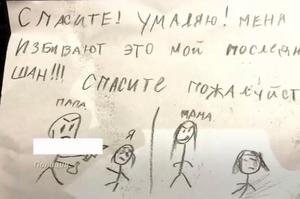 СПАСИТЕ! УМАЛЯЮ! МЕНА
ИЗБИВАЮТ ЭТО МОЙ ПОСЛЕДАН
ШАН!!!
СПАСИТЕ ПОЖАЛУЙСТ
ПАПА
Я
МАМА